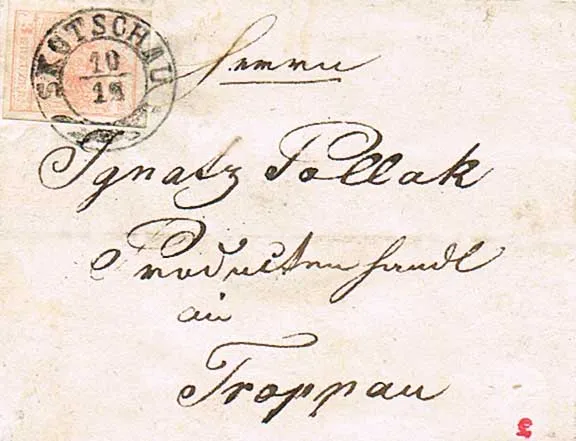 SKOTSCHAU
10
12
Herrn
Ignatz Pollak
Productenhandl
in
Troppau